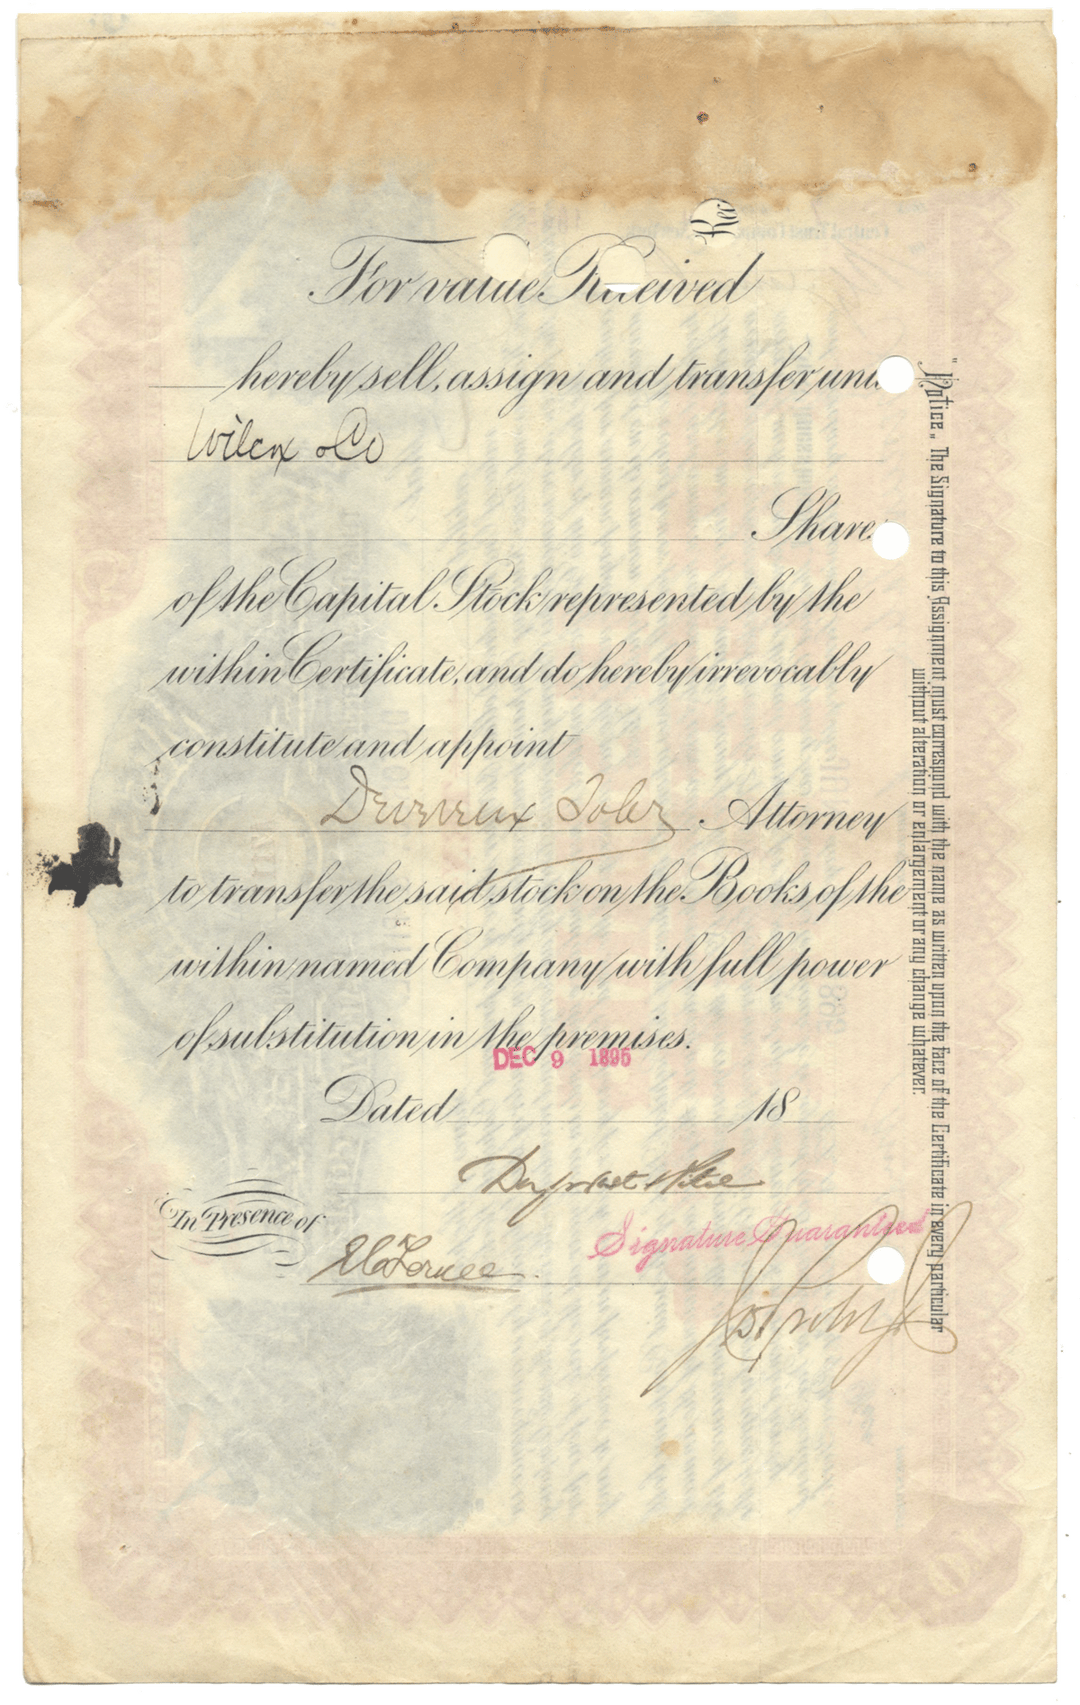 For value Received
hereby sell, assign and transfer unt
Wilcox & Co
Share
of the Capital Stock represented by the
within Certificate, and do hereby irrevocably
constitute and appoint
Attorney
to transfer the said stock on the Books of the
within named Company with full power
of substitution in the premises.
DEC 9 1895
Dated 18
In Presence of
Signature Guaranteed
"Notice." The Signature to this Assignment must correspond with the name as written upon the face of the Certificate in every particular
without alteration or enlargement or any change whatever.